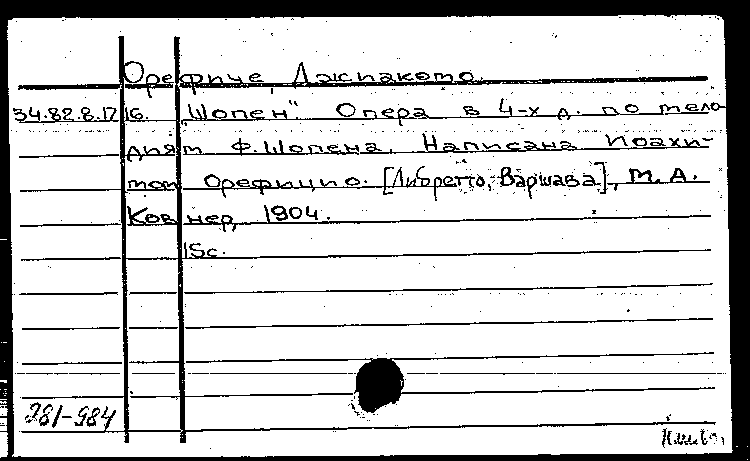 Орефиче, Джиакото.
34.82.8.1716. „Шопен". Опера в 4-х д. по мело-
диям Ф. Шопена. Написана Иоахи-
мом Орефицио. [Либретто, Варшава], М. А.
Ковнер, 1904.
15с.
281-984